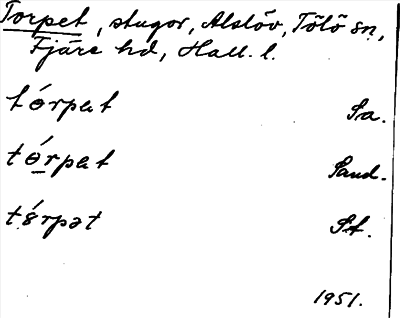 Torpet, stugor, Alslöv, Tölö sn,
Fjäre hd, Hall. l.
tórpat Sa.
tө́rpat Sand.
tө́rpət St.
1951.